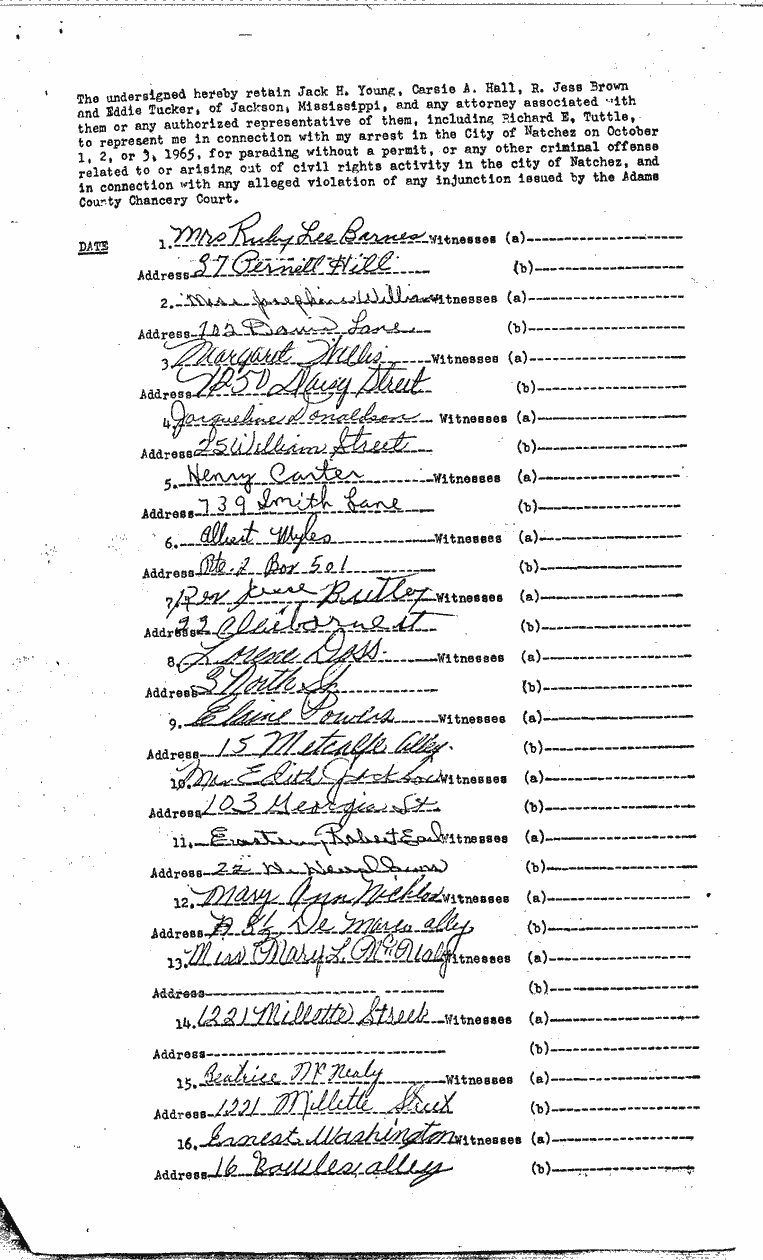 The undersigned hereby retain Jack H. Young, Carsie A. Hall, R. Jess Brown
and Eddie Tucker, of Jackson, Mississippi, and any attorney associated with
them or any authorized representative of them, including Richard E. Tuttle,
to represent me in connection with my arrest in the City of Natchez on October
1, 2, or 3, 1965, for parading without a permit, or any other criminal offense
related to or arising out of civil rights activity in the city of Natchez, and
in connection with any alleged violation of any injunction issued by the Adams
County Chancery Court.
DATE 1. Mrs Ruby Lee Barnes Witnesses (a)
Address 37 Pernell Hill (b)
2. Mrs. Josephine William Witnesses (a)
Address 702 Lane (b)
3. Margaret Willis Witnesses (a)
Address 1250 Daisy Street (b)
4. Jacqueline Donaldson Witnesses (a)
Address 25 William Street (b)
5. Henry Carter Witnesses (a)
Address 739 Smith Lane (b)
6. Albert Myles Witnesses (a)
Address Rte. 2 Box 501 (b)
7. Rev Jesse Witnesses (a)
Address 22 Claiborne st (b)
8. Lorene Doss. Witnesses (a)
Address 3 North St. (b)
9. Elaine Powers Witnesses (a)
Address 15 Metcalfe alley. (b)
10. Mrs. Edith Jackson Witnesses (a)
Address 103 Georgia St. (b)
11. Robert Earl Witnesses (a)
Address 22 (b)
12. Mary Ann Witnesses (a)
Address De Marco alley (b)
13. Miss Mary L. McNealy Witnesses (a)
Address (b)
14. 1221 Millette Street Witnesses (a)
Address (b)
15. Beatrice McNealy Witnesses (a)
Address 1221 Millette Street (b)
16. Ernest Washington Witnesses (a)
Address 16 Bowles alley (b)